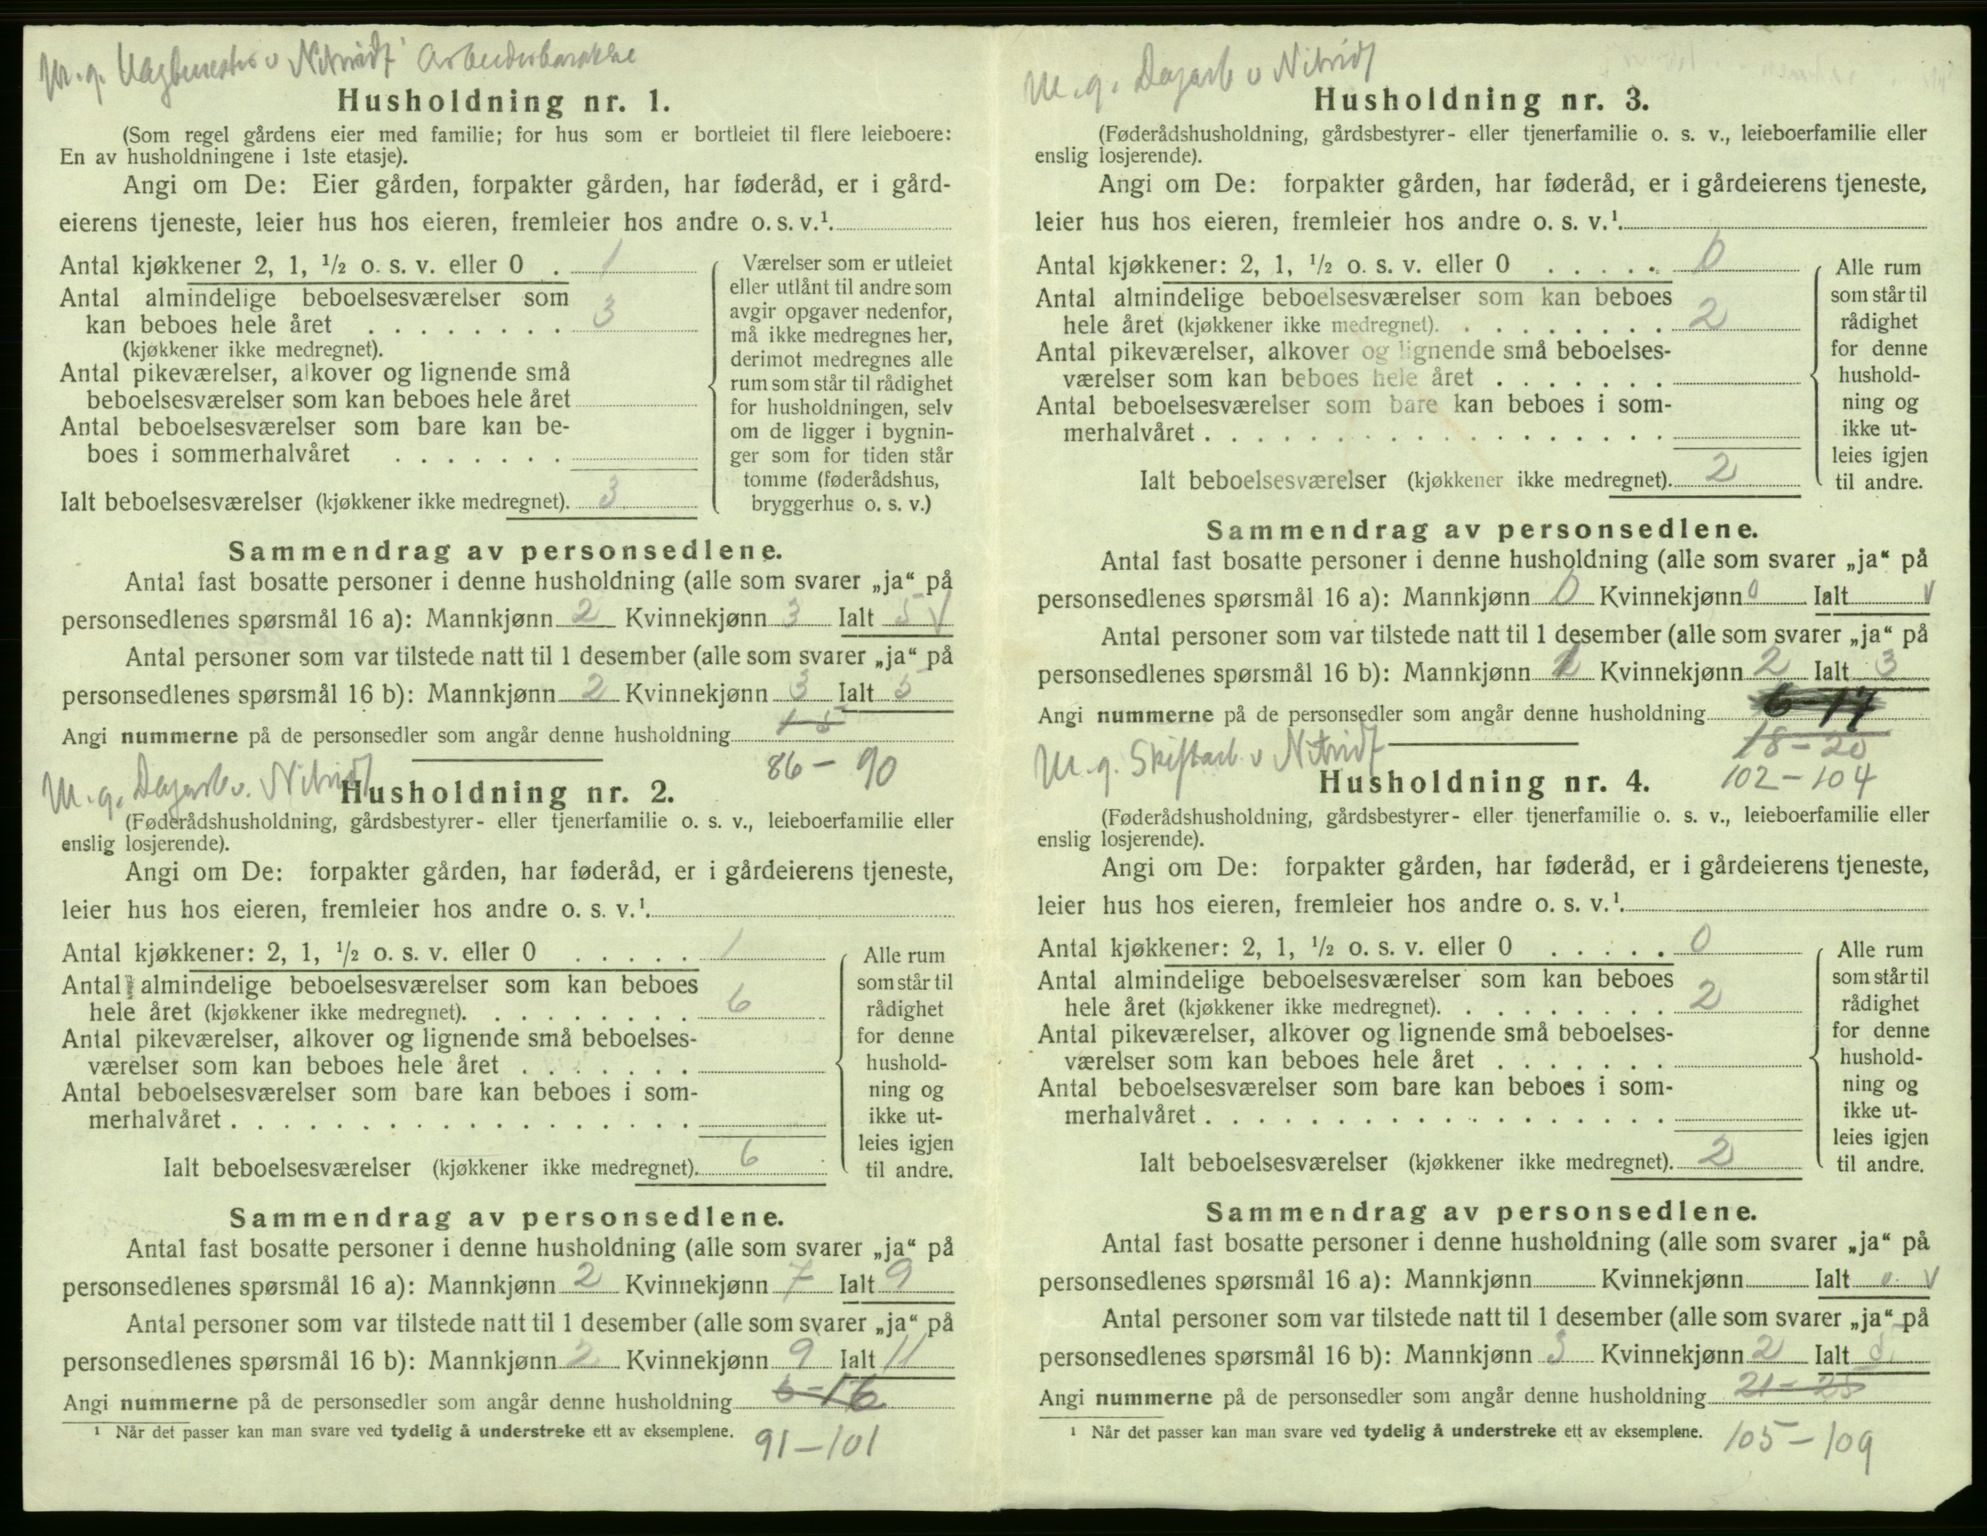 M. g. v Nitrid Arbeiderbarakke
Husholdning nr. 1.
(Som regel gårdens eier med familie; for hus som er bortleiet til flere leieboere:
En av husholdningene i 1ste etasje).
Angi om De: Eier gården, forpakter gården, har føderåd, er i gård-
eierens tjeneste, leier hus hos eieren, fremleier hos andre o. s. v.¹.
Antal kjøkkener 2, 1, ½ o. s. v. eller 0 . 1
Antal almindelige beboelsesværelser som
kan beboes hele året . . . . . . . . 3
(kjøkkener ikke medregnet).
Antal pikeværelser, alkover og lignende små
beboelsesværelser som kan beboes hele året
Antal beboelsesværelser som bare kan be-
boes i sommerhalvåret . . . . . . .
Ialt beboelsesværelser (kjøkkener ikke medregnet). 3
Værelser som er utleiet
eller utlånt til andre som
avgir opgaver nedenfor,
må ikke medregnes her,
derimot medregnes alle
rum som står til rådighet
for husholdningen, selv
om de ligger i bygnin-
ger som for tiden står
tomme (føderådshus,
bryggerhus o. s. v.)
Sammendrag av personsedlene.
Antal fast bosatte personer i denne husholdning (alle som svarer „ja“ på
personsedlenes spørsmål 16 a): Mannkjønn 2 Kvinnekjønn 3 Ialt 5 √
Antal personer som var tilstede natt til 1 desember (alle som svarer „ja“ på
personsedlenes spørsmål 16 b): Mannkjønn 2 Kvinnekjønn 3 Ialt 5
Angi nummerne på de personsedler som angår denne husholdning 1-5
86 - 90
M. g. Dagarb v. Nitrid
Husholdning nr. 2.
(Føderådshusholdning, gårdsbestyrer- eller tjenerfamilie o. s. v., leieboerfamilie eller
enslig losjerende).
Angi om De: forpakter gården, har føderåd, er i gårdeierens tjeneste,
leier hus hos eieren, fremleier hos andre o. s. v.¹.
Antal kjøkkener: 2, 1, ½ o. s. v. eller 0 . . . . . 1
Antal almindelige beboelsesværelser som kan beboes
hele året (kjøkkener ikke medregnet). . . . . . . . . 6
Antal pikeværelser, alkover og lignende små beboelses-
værelser som kan beboes hele året . . . . . . .
Antal beboelsesværelser som bare kan beboes i som-
merhalvåret . . . . . . . . . . . . . . . . . .
Ialt beboelsesværelser (kjøkkener ikke medregnet). 6
Alle rum
som står til
rådighet
for denne
hushold-
ning og
ikke ut-
leies igjen
til andre.
Sammendrag av personsedlene.
Antal fast bosatte personer i denne husholdning (alle som svarer „ja“ på
personsedlenes spørsmål 16 a): Mannkjønn 2 Kvinnekjønn 7 Ialt 9
Antal personer som var tilstede natt til 1 desember (alle som svarer „ja“ på
personsedlenes spørsmål 16 b): Mannkjønn 2 Kvinnekjønn 9 Ialt 11
Angi nummerne på de personsedler som angår denne husholdning 6-16
¹ Når det passer kan man svare ved tydelig å understreke ett av eksemplene.
91-101
M. g. Dagarb v Nitrid
Husholdning nr. 3.
(Føderådshusholdning, gårdsbestyrer- eller tjenerfamilie o. s. v., leieboerfamilie eller
enslig losjerende).
Angi om De: forpakter gården, har føderåd, er i gårdeierens tjeneste,
leier hus hos eieren, fremleier hos andre o. s. v.¹.
Antal kjøkkener: 2, 1, ½ o. s. v. eller 0 . . . . . 0
Antal almindelige beboelsesværelser som kan beboes
hele året (kjøkkener ikke medregnet). . . . . . . . . 2
Antal pikeværelser, alkover og lignende små beboelses-
værelser som kan beboes hele året . . . . . . .
Antal beboelsesværelser som bare kan beboes i som-
merhalvåret . . . . . . . . . . . . . . . . . .
Ialt beboelsesværelser (kjøkkener ikke medregnet). 2
Alle rum
som står til
rådighet
for denne
hushold-
ning og
ikke ut-
leies igjen
til andre.
Sammendrag av personsedlene.
Antal fast bosatte personer i denne husholdning (alle som svarer „ja“ på
personsedlenes spørsmål 16 a): Mannkjønn 0 Kvinnekjønn 0 Ialt √
Antal personer som var tilstede natt til 1 desember (alle som svarer „ja“ på
personsedlenes spørsmål 16 b): Mannkjønn 1 Kvinnekjønn 2 Ialt 3
Angi nummerne på de personsedler som angår denne husholdning 6-17
18-20
102-104
M. g. Skiftarb. v Nitrid
Husholdning nr. 4.
(Føderådshusholdning, gårdsbestyrer- eller tjenerfamilie o. s. v., leieboerfamilie eller
enslig losjerende).
Angi om De: forpakter gården, har føderåd, er i gårdeierens tjeneste,
leier hus hos eieren, fremleier hos andre o. s. v.¹.
Antal kjøkkener: 2, 1, ½ o. s. v. eller 0 . . . . . 0
Antal almindelige beboelsesværelser som kan beboes
hele året (kjøkkener ikke medregnet). . . . . . . . . 2
Antal pikeværelser, alkover og lignende små beboelses-
værelser som kan beboes hele året . . . . . . .
Antal beboelsesværelser som bare kan beboes i som-
merhalvåret . . . . . . . . . . . . . . . . . .
Ialt beboelsesværelser (kjøkkener ikke medregnet). 2
Alle rum
som står til
rådighet
for denne
hushold-
ning og
ikke ut-
leies igjen
til andre.
Sammendrag av personsedlene.
Antal fast bosatte personer i denne husholdning (alle som svarer „ja“ på
personsedlenes spørsmål 16 a): Mannkjønn Kvinnekjønn Ialt 0 √
Antal personer som var tilstede natt til 1 desember (alle som svarer „ja“ på
personsedlenes spørsmål 16 b): Mannkjønn 3 Kvinnekjønn 2 Ialt 5
Angi nummerne på de personsedler som angår denne husholdning 21-25
¹ Når det passer kan man svare ved tydelig å understreke ett av eksemplene.
105-109